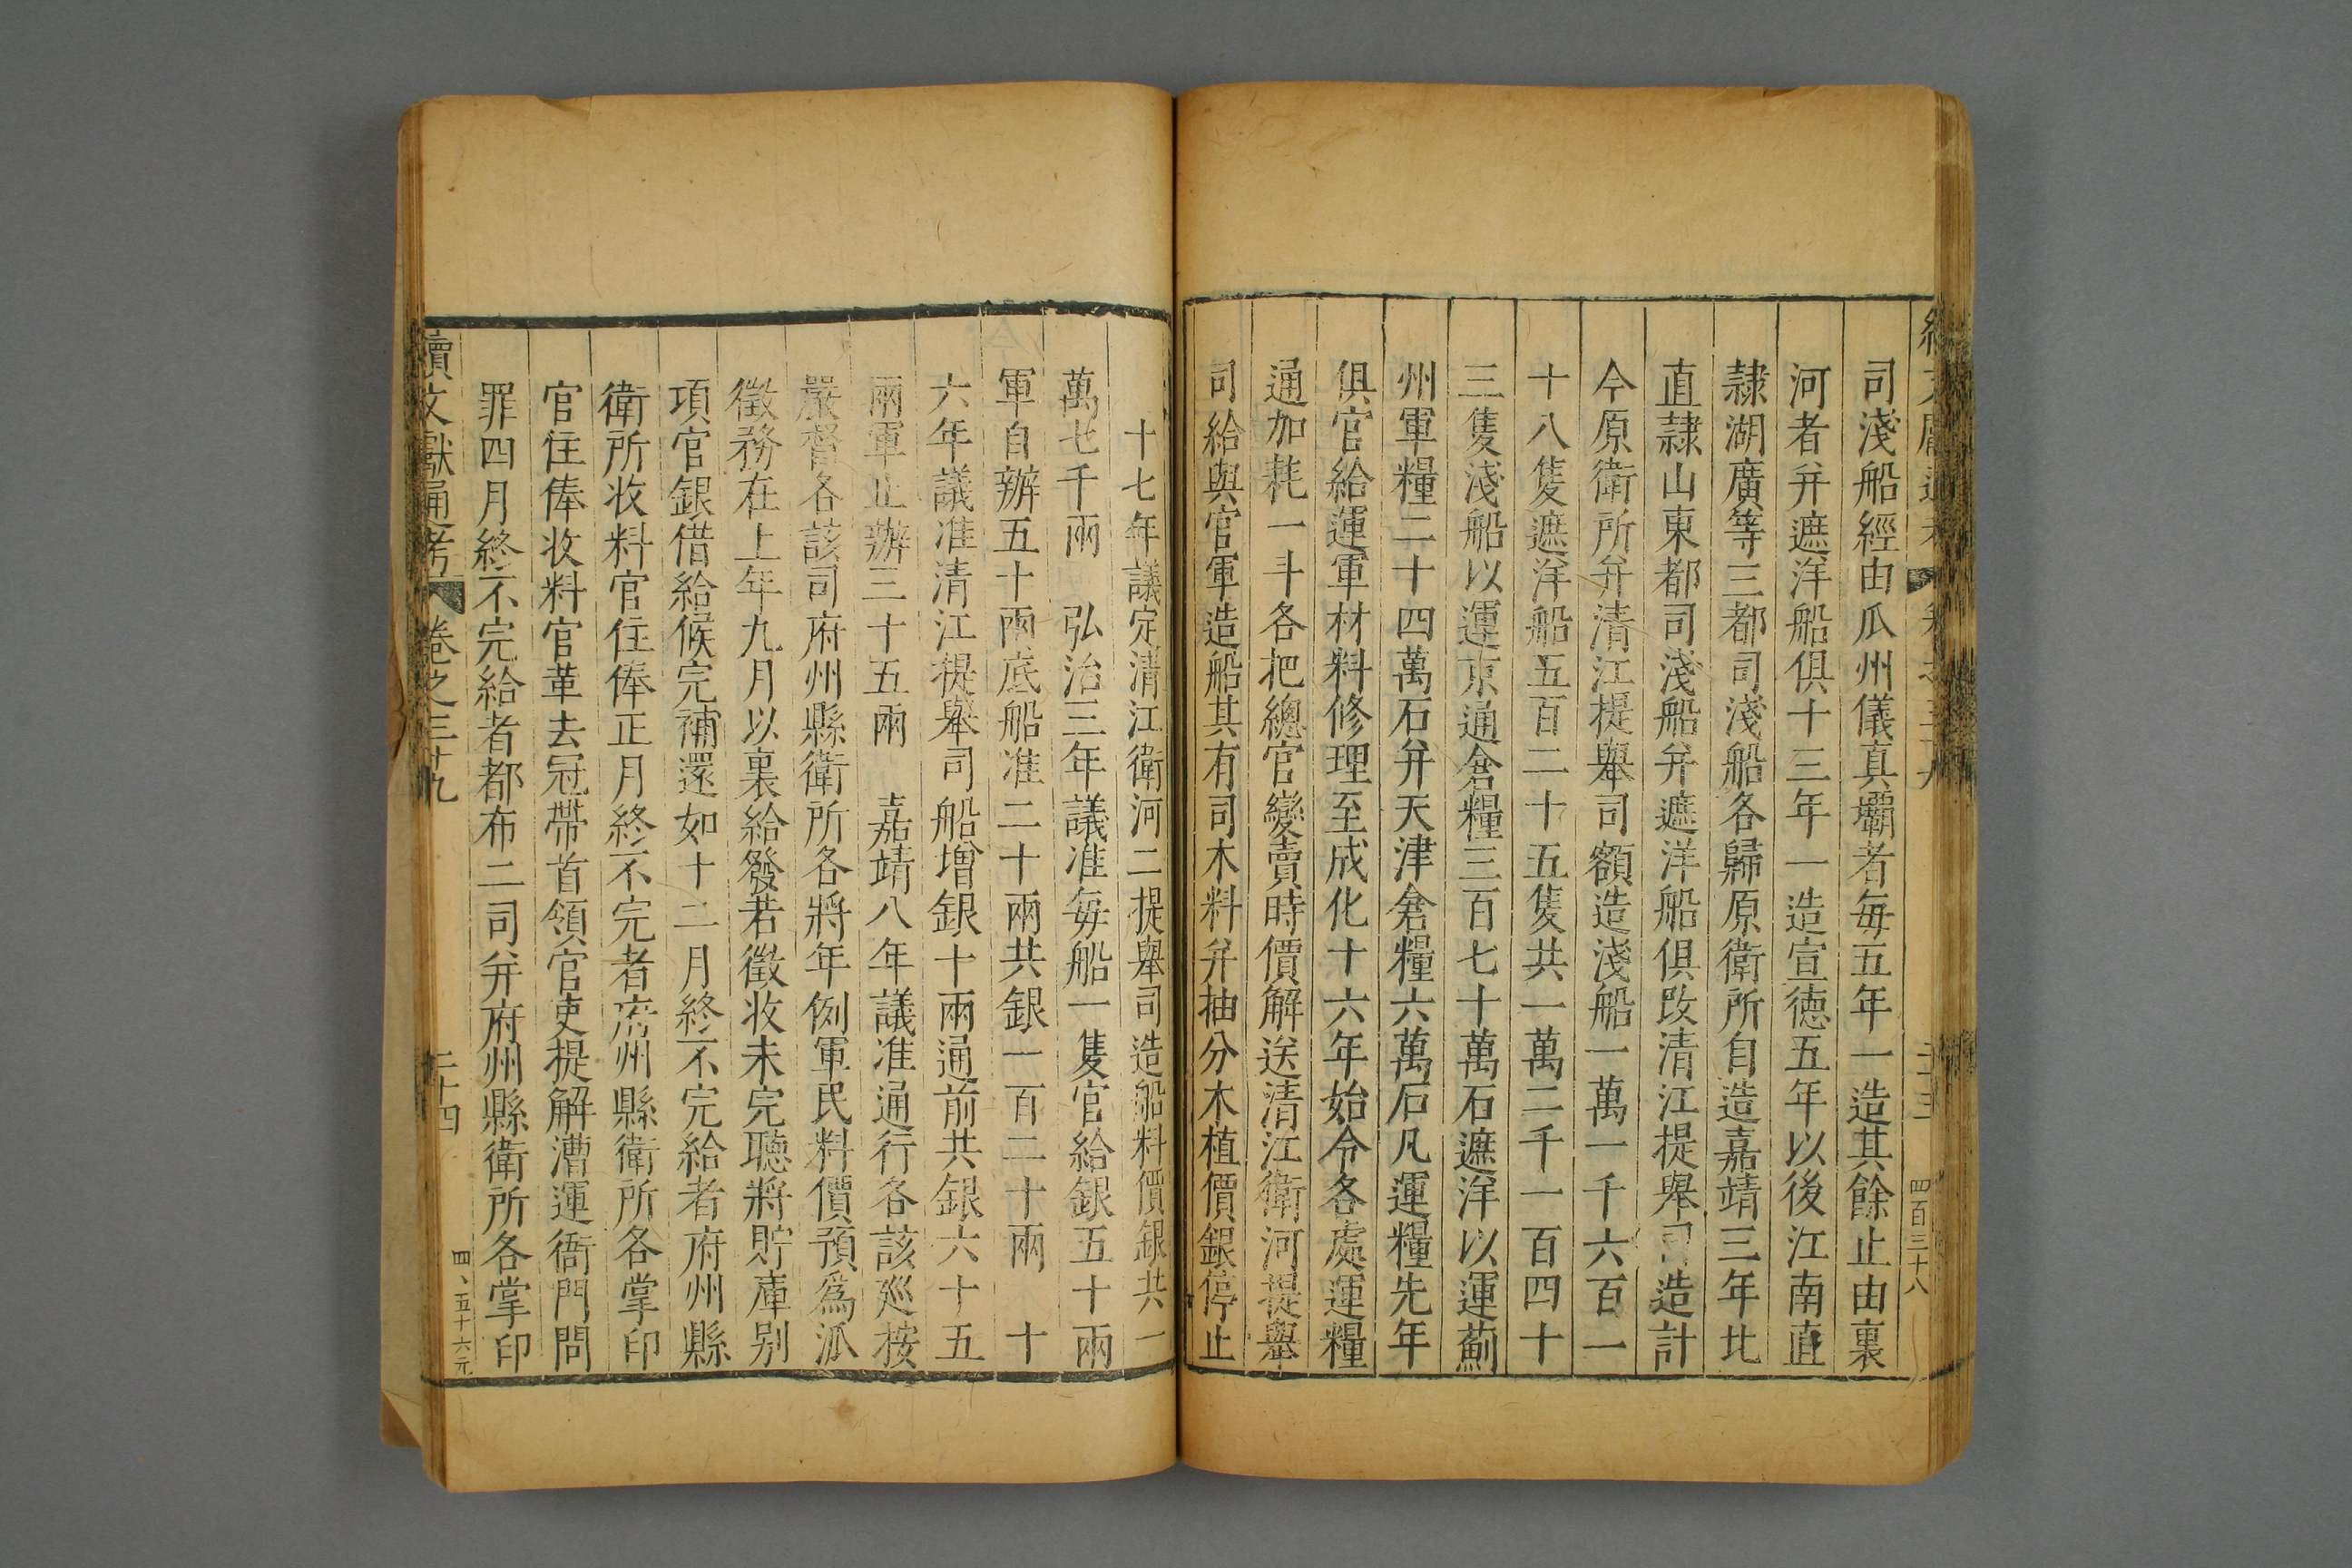 司淺船經由瓜州儀真壩者每五年一造其餘止由裏
河者弁遮洋船俱十三年一造宣德五年以後江南直
隸湖廣等三都司淺船各歸原衛所自造嘉靖三年北
直隸山東都司淺船弁遮洋船俱改清江提舉司造計
今原衛所弁清江提舉司額造淺船一萬一千六百一
十八隻遮洋船五百二十五隻共一萬二千一百四十
三隻淺船以運京通倉糧三百七十萬石遮洋以運薊
州軍糧二十四萬石弁天津倉糧六萬石凡運糧先年
俱官給運軍材料修理至成化十六年始令各處運糧
通加耗一斗各把總官變賣時價解送清江衛河提舉
司給與官軍造船其有司木料弁抽分木植價銀停止
十七年議定清江衛河二提舉司造船料價銀共一
萬七千兩 弘治三年議准每船一隻官給銀五十兩
軍自辦五十兩底船准二十兩共銀一百二十兩 十
六年議准清江提舉司船增銀十兩通前共銀六十五
兩軍止辦三十五兩 嘉靖八年議准通行各該巡按
嚴督各該司府州縣衛所各將年例軍民料價預為派
徵務在上年九月以裏給發若徵收未完聽將貯庫別
項官銀借給候完補還如十二月終不完給者府州縣
衛所收料官住俸正月終不完者府州縣衛所各掌印
官住俸收料官革去冠帶首領官吏提解漕運衙門問
罪四月終不完給者都布二司弁府州縣衛所各掌印
續文獻通考 卷之三十九 二十四 四、五十六元